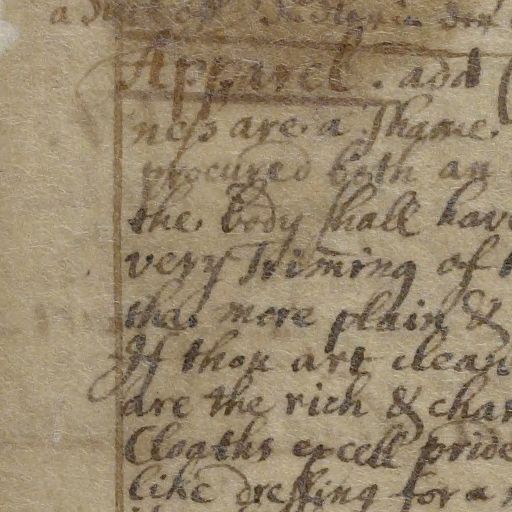 Apparel. add
ness are a shame.
procured both an
the body shall have
very Trim̄ing of
the more plain &
If thou art clean
are the rich & char
Cloaths excell pride
like dressing for a